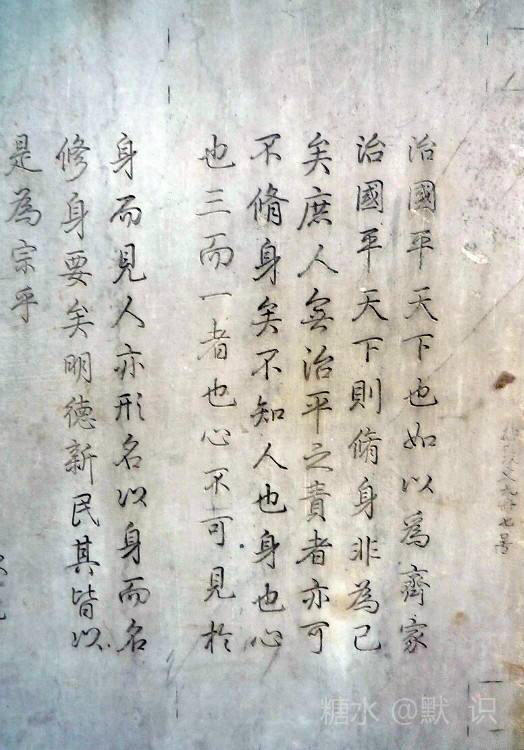 治國平天下也如以為齊家
治國平天下則脩身非為己
矣庶人無治平之責者亦可
不脩身矣不知人也身也心
也三而一者也心不可見於
身而見人亦形名以身而名
修身要矣明德新民其皆以
是為宗乎
七号
糖水 @默 识